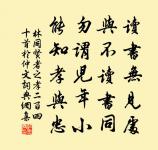 讀書無見處
與不讀書同
勿謂兒年小
能知孝與忠
林同賢者之孝二百四
十首於仲文詞典網集